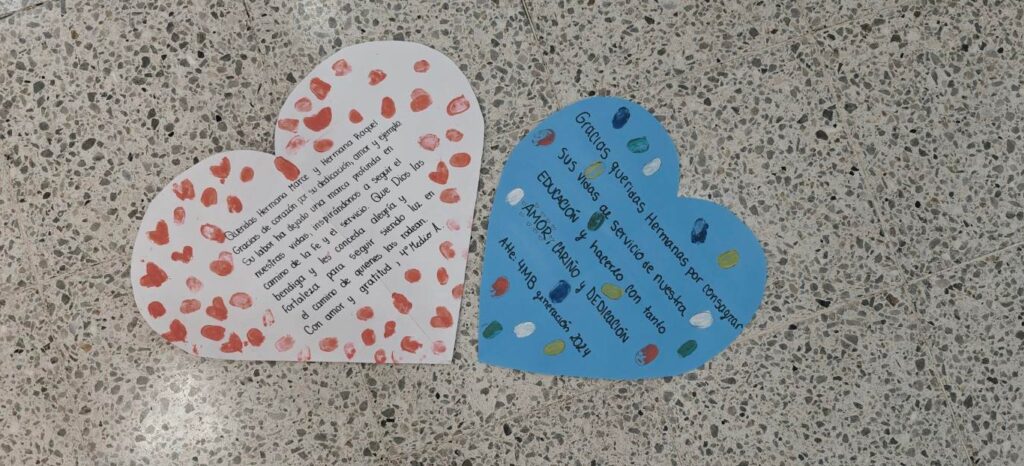 Queridas Hermana Marce y Hermana Raquel
Gracias de corazón por su dedicación, amor y ejemplo.
Su labor ha dejado una marca profunda en
nuestras vidas, inspirándonos a seguir el
camino de la fe y el servicio. Que Dios las
bendiga y les conceda alegría y
fortaleza para seguir siendo luz en
el camino de quienes las rodean.
Con amor y gratitud, 4° Medio A.
Gracias queridas Hermanas por consagrar
sus vidas de servicio de nuestra
EDUCACIÓN y hacerlo con tanto
AMOR, CARIÑO y DEDICACIÓN
Atte: 4MB generación 2024